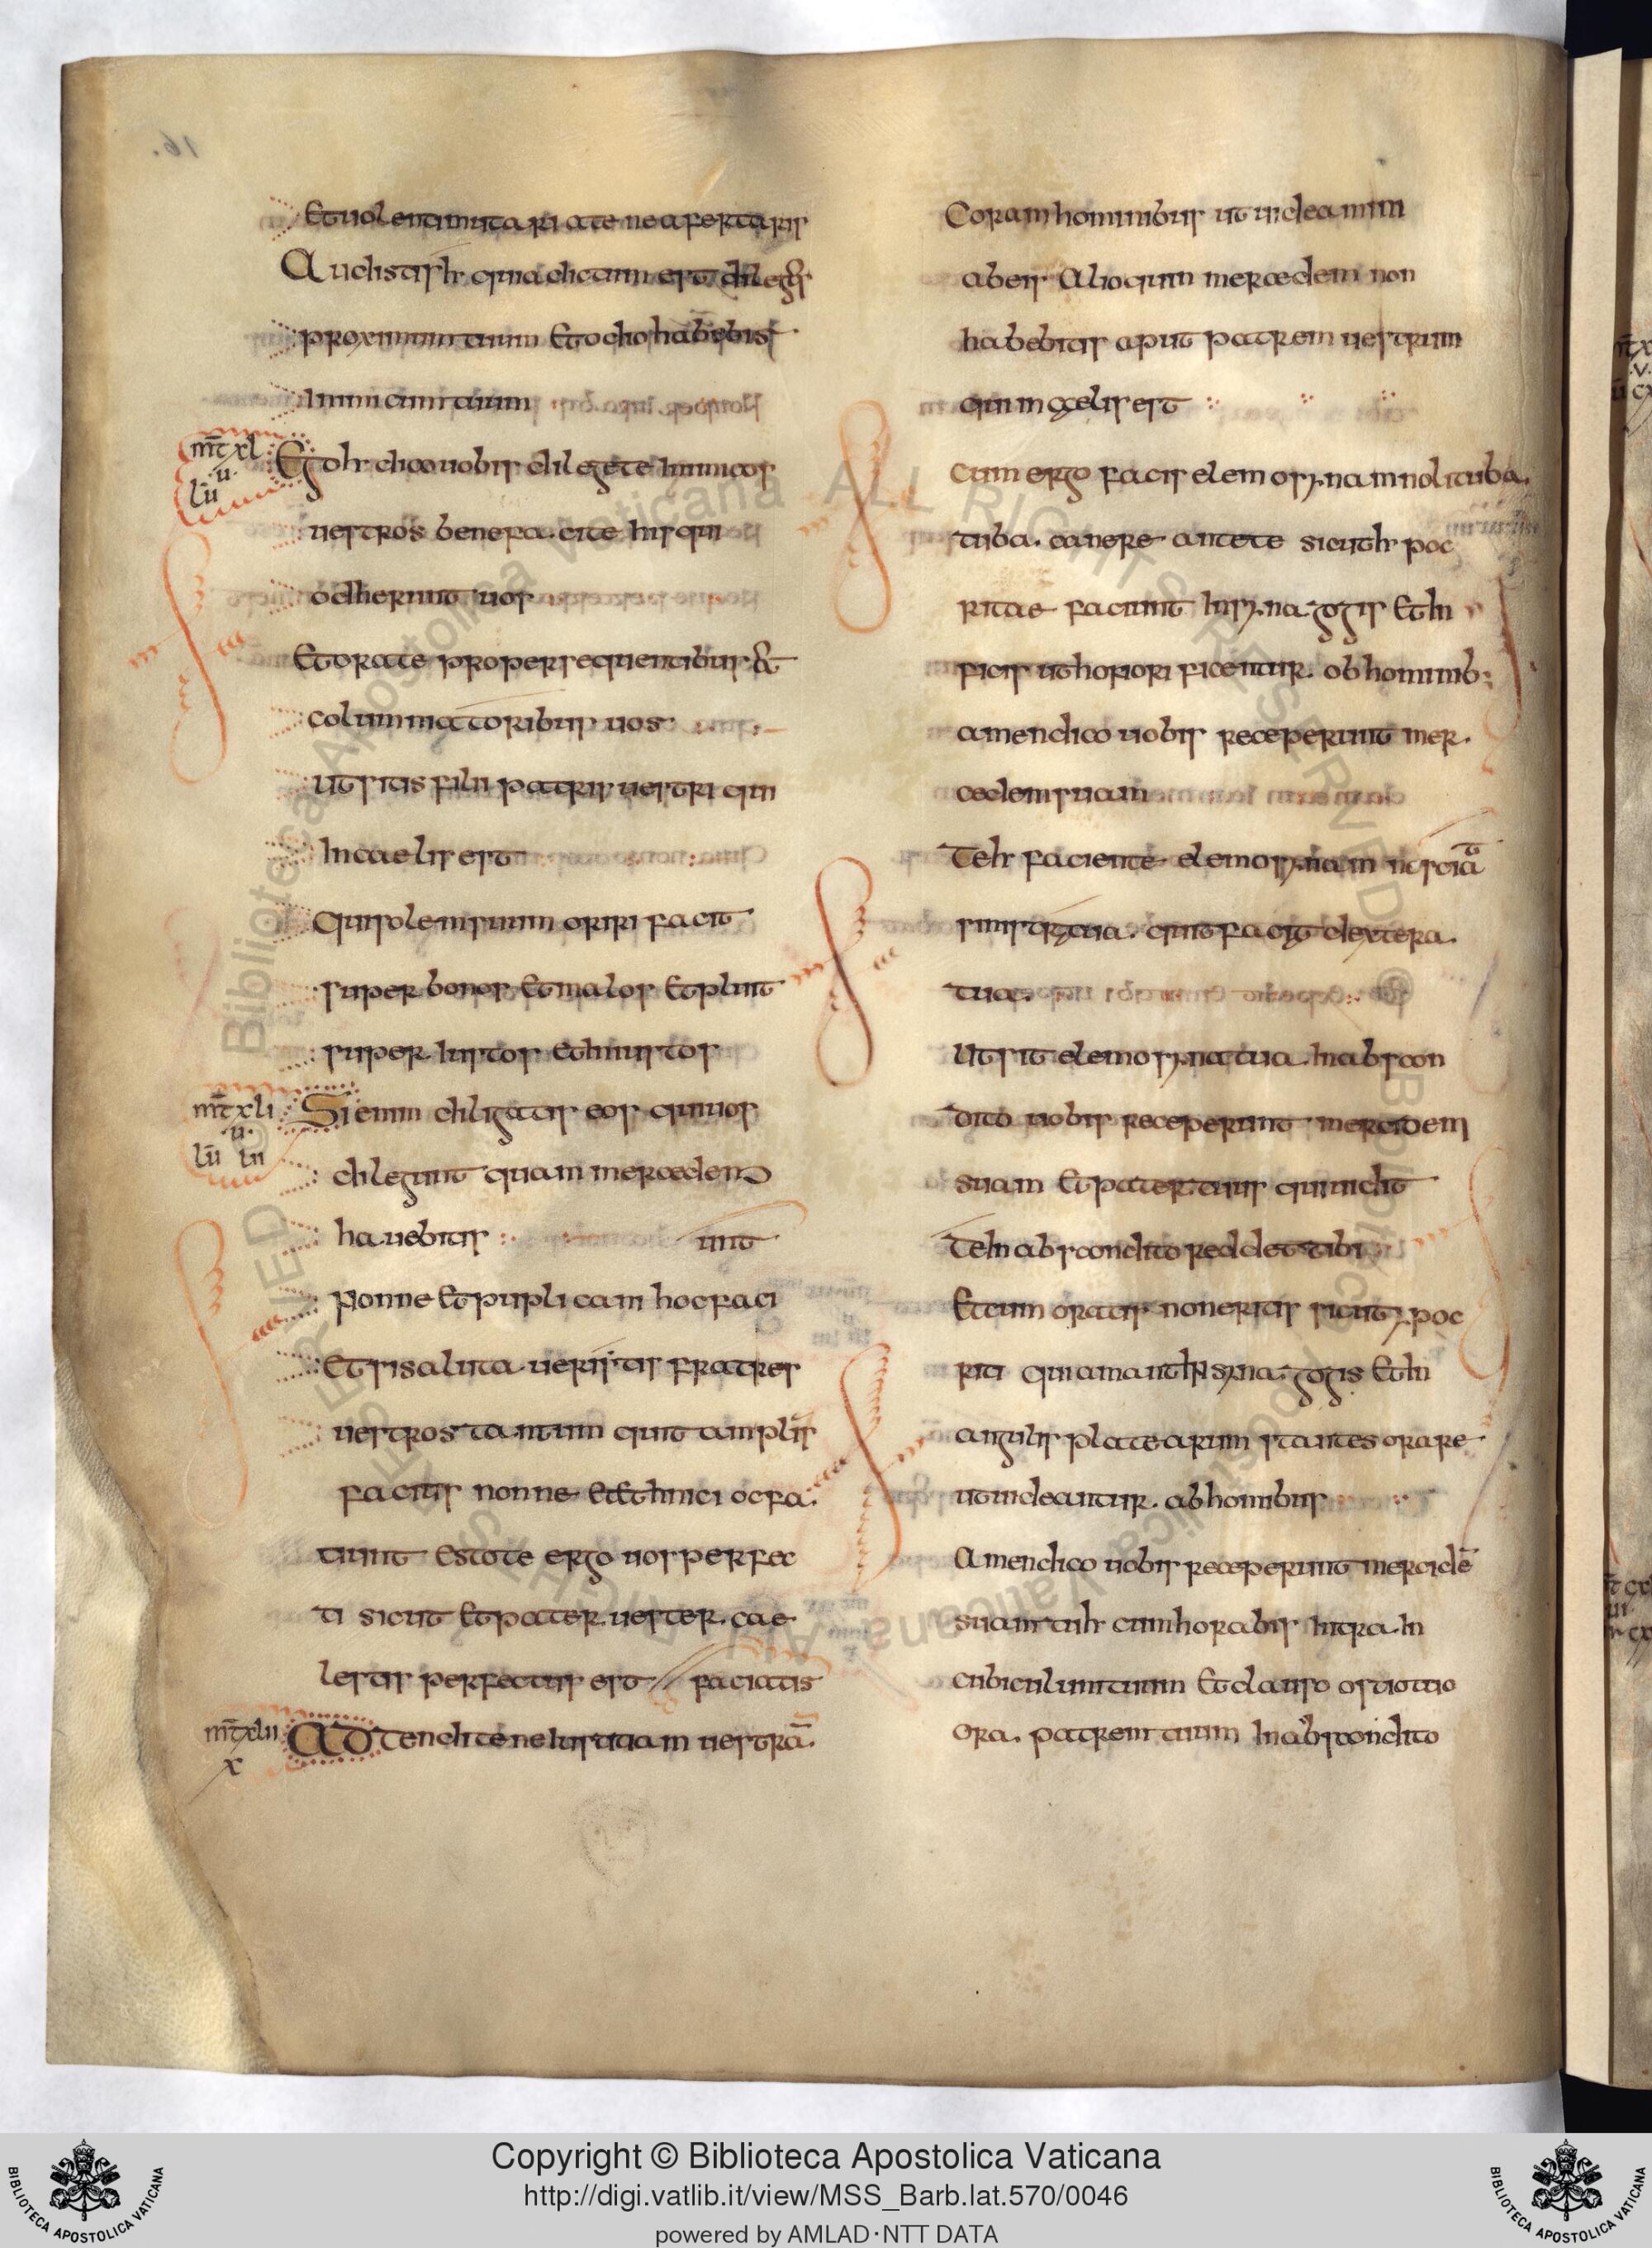 Et uolenti muta ri a te ne afertaris
Audistis h̄ quia dictum est dileges
proximum tuum Et odio habebis
Inimicum tuum
m̄t xl
u
lū
Ego h̄ dico uobis dilegete Inimicos
uestros benefa.cite his qui
odherunt uos
Et orate pro persequentibus &
columniatoribus uos
Ut sitis filii patris uestri qui
In caelis est
Qui solem suum oriri facit
super bonos Et malos Et pluit
super Iustos Et Iniustos
m̄t xli
u
lū
Si enim diligatis eos qui uos
dilegunt quam mercedem
hauebitis
unt
Nonne Et puplicani hoc faci
Et si saluta ueristis fratres
uestros tantum quit amplis
facitis nonne Et Ethnici oc fa.
ciunt Estote ergo uos perfec
ti sicut Et pater uester cae
lestis perfectus est // faciatis
m̄t xlii
x
Adtendite ne Iustitiam uestrā.
Coram hominibus ut uideamini
ab eis Alioquin mercedem non
habebitis aput patrem uestrum
qui in caelis est
Cum ergo facis elemosynam noli tuba.
tuba. canere ante te sicut h̄ poc
ritae faciunt In synagogis Et In
ficis ut honori ficentur. ob hominib:
amen dico uobis receperunt mer.
cedem suam
Te h̄ faciente elemosynam nesciat
sinistra tua. quit facit dextera.
tua.
Ut sit elemosyna tua In abscon
dito uobis receperunt mercidem
suam Et pater tuus qui uidit
Te In abscondito reddet tibi
Et cum oratis non eritis sicut ypoc
riti qui amant In synagogis Et In
angulis platearum stantes orare
ut uideantur. ab homibus
Amen dico uobis receperunt mercidē
suam tu h̄ cum horabis Intra In
cubiculum tuum Et clauso ostio tuo
ora. patrem tuum In abscondito
Copyright © Biblioteca Apostolica Vaticana
http://digi.vatlib.it/view/MSS_Barb.lat.570/0046
powered by AMLAD·NTT DATA
BIBLIOTECA APOSTOLICA VATICANA
BIBLIOTECA APOSTOLICA VATICANA